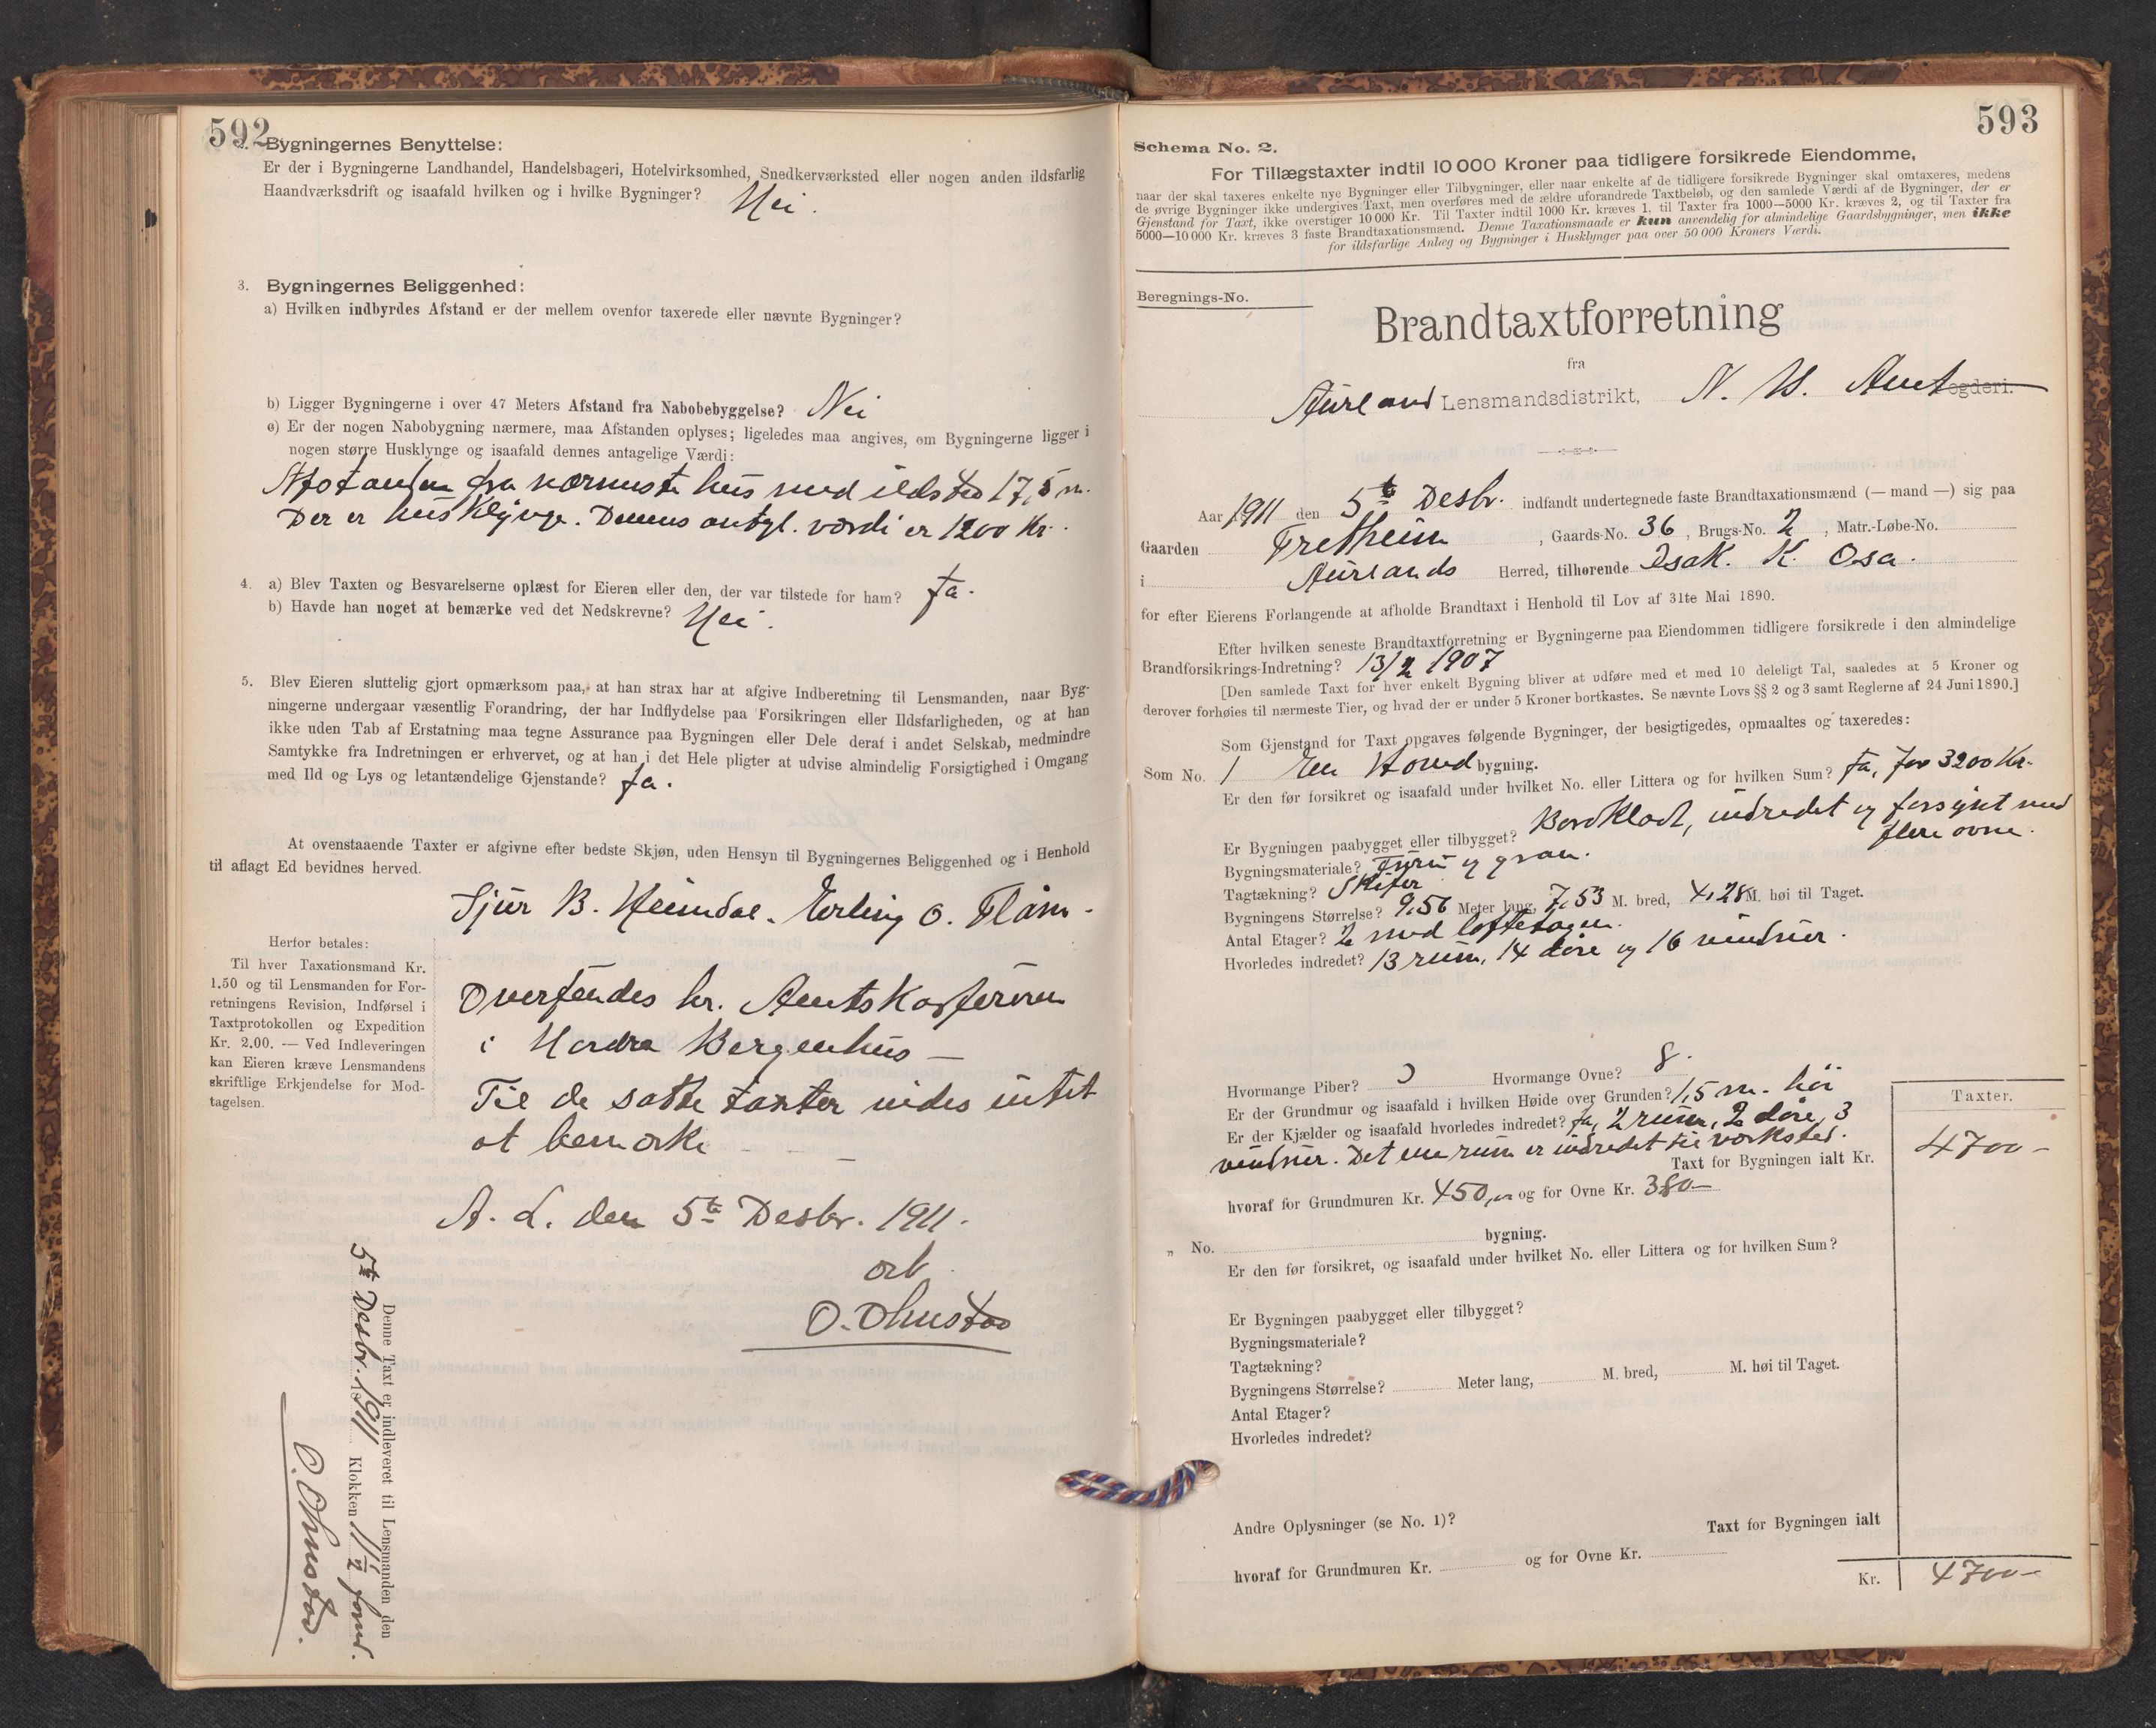 592
2. Bygningernes Benyttelse:
Er der i Bygningerne Landhandel, Handelsbageri, Hotelvirksomhed, Snedkerværksted eller nogen anden ildsfarlig
Haandværksdrift og isaafald hvilken og i hvilke Bygninger? Nei.
3. Bygningernes Beliggenhed:
a) Hvilken indbyrdes Afstand er der mellem ovenfor taxerede eller nævnte Bygninger?
b) Ligger Bygningerne i over 47 Meters Afstand fra Nabobebyggelse? Nei
c) Er der nogen Nabobygning nærmere, maa Afstanden oplyses; ligeledes maa angives, om Bygningerne ligger i
nogen større Husklynge og isaafald dennes antagelige Værdi:
Afstanden fra nærmeste hus med ildsted 17,5 m.
Der er husklynge. Dennes antgl. værdi er 1200 Kr.
4. a) Blev Taxten og Besvarelserne oplæst for Eieren eller den, der var tilstede for ham? Ja.
b) Havde han noget at bemærke ved det Nedskrevne? Nei.
5. Blev Eieren sluttelig gjort opmærksom paa, at han strax har at afgive Indberetning til Lensmanden, naar Byg-
ningerne undergaar væsentlig Forandring, der har Indflydelse paa Forsikringen eller Ildsfarligheden, og at han
ikke uden Tab af Erstatning maa tegne Assurance paa Bygningen eller Dele deraf i andet Selskab, medmindre
Samtykke fra Indretningen er erhvervet, og at han i det Hele pligter at udvise almindelig Forsigtighed i Omgang
med Ild og Lys og letantændelige Gjenstande? Ja.
At ovenstaaende Taxter er afgivne efter bedste Skjøn, uden Hensyn til Bygningernes Beliggenhed og i Henhold
til aflagt Ed bevidnes herved.
Sjur B. Heimdal. Erling O. Flåm.
Herfor betales:
Til hver Taxationsmand Kr.
1.50 og til Lensmanden for For-
retningens Revision, Indførsel i
Taxtprotokollen og Expedition
Kr. 2.00. — Ved Indleveringen
kan Eieren kræve Lensmandens
skriftlige Erkjendelse for Mod-
tagelsen.
Oversendes hr. Amtskasserern
i Nordre Bergenhus —
Til de satte taxter vides intet
at bemærke
A. L. den 5te Desbr. 1911.
arb
O. Ohnstad
Denne Taxt er indleveret til Lensmanden den
5te Desbr. 1911 Klokken 11 1/2 form.
O. Ohnstad.
593
Schema No. 2.
For Tillægstaxter indtil 10 000 Kroner paa tidligere forsikrede Eiendomme,
naar der skal taxeres enkelte nye Bygninger eller Tilbygninger, eller naar enkelte af de tidligere forsikrede Bygninger skal omtaxeres, medens
de øvrige Bygninger ikke undergives Taxt, men overføres med de ældre uforandrede Taxtbeløb, og den samlede Værdi af de Bygninger, der er
Gjenstand for Taxt, ikke overstiger 10 000 Kr. Til Taxter indtil 1000 Kr. kræves 1, til Taxter fra 1000—5000 Kr. kræves 2, og til Taxter fra
5000—10 000 Kr. kræves 3 faste Brandtaxationsmænd. Denne Taxationsmaade er kun anvendelig for almindelige Gaardsbygninger, men ikke
for ildsfarlige Anlæg og Bygninger i Husklynger paa over 50 000 Kroners Værdi.
Beregnings-No.
Brandtaxtforretning
fra
Aurland Lensmandsdistrikt, N. B. Amt ogderi.
Aar 1911 den 5te Desbr. indfandt undertegnede faste Brandtaxationsmænd (— mand —) sig paa
Gaarden Fretheim, Gaards-No. 36, Brugs-No. 2, Matr.-Løbe-No.
i Aurlands Herred, tilhørende Isak. K. Osa.
for efter Eierens Forlangende at afholde Brandtaxt i Henhold til Lov af 31te Mai 1890.
Efter hvilken seneste Brandtaxtforretning er Bygningerne paa Eiendommen tidligere forsikrede i den almindelige
Brandforsikrings-Indretning? 13/2 1907
[Den samlede Taxt for hver enkelt Bygning bliver at udføre med et med 10 deleligt Tal, saaledes at 5 Kroner og
derover forhøies til nærmeste Tier, og hvad der er under 5 Kroner bortkastes. Se nævnte Lovs §§ 2 og 3 samt Reglerne af 24 Juni 1890.]
Som Gjenstand for Taxt opgaves følgende Bygninger, der besigtigedes, opmaaltes og taxeredes:
Som No. 1 En Hovedbygning.
Er den før forsikret og isaafald under hvilket No. eller Littera og for hvilken Sum? Ja, for 3200 Kr.
Er Bygningen paabygget eller tilbygget? Bordklæd, indredet og forsynet med
flere ovne.
Bygningsmateriale? Furu og gran.
Tagtækning? Skifer
Bygningens Størrelse? 9,56 Meter lang, 7,53 M. bred, 4,28 M. høi til Taget.
Antal Etager? 2 med loftetagen.
Hvorledes indredet? 13 rum, 14 døre og 16 vinduer.
Hvormange Piber? Hvormange Ovne? 8.
Er der Grundmur og isaafald i hvilken Høide over Grunden? 1,5 m. høi
Er der Kjælder og isaafald hvorledes indredet? Ja, 2 rum, 2 døre, 3
vinduer. Det ene rum er indredet til værksted.
Taxter.
Taxt for Bygningen ialt Kr. 4700 –
hvoraf for Grundmuren Kr. 450,00 og for Ovne Kr. 380 –
„ No. bygning.
Er den før forsikret, og isaafald under hvilket No. eller Littera og for hvilken Sum?
Er Bygningen paabygget eller tilbygget?
Bygningsmateriale?
Tagtækning?
Bygningens Størrelse? Meter lang, M. bred, M. høi til Taget.
Antal Etager?
Hvorledes indredet?
Andre Oplysninger (se No. 1)? Taxt for Bygningen ialt
hvoraf for Grundmuren Kr. og for Ovne Kr.
Kr. 4700 –